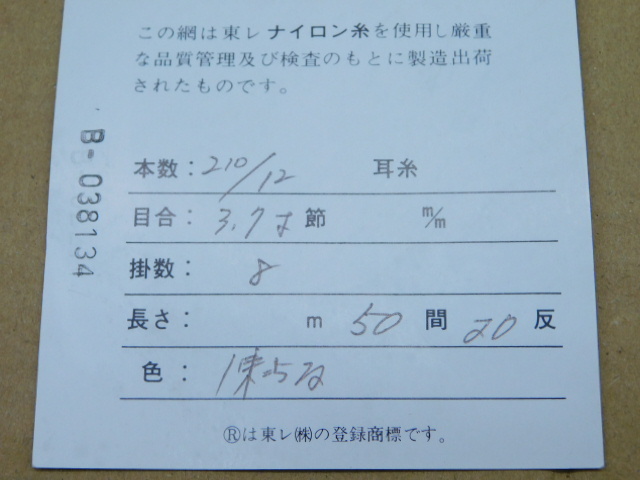 この網は東レナイロン糸を使用し厳重
な品質管理及び検査のもとに製造出荷
されたものです。
B-038134
本数：210/12 耳糸
目合：3.7寸 節 m/m
掛数：8
長さ： m 50 間 20 反
色：
Ⓡは東レ㈱の登録商標です。